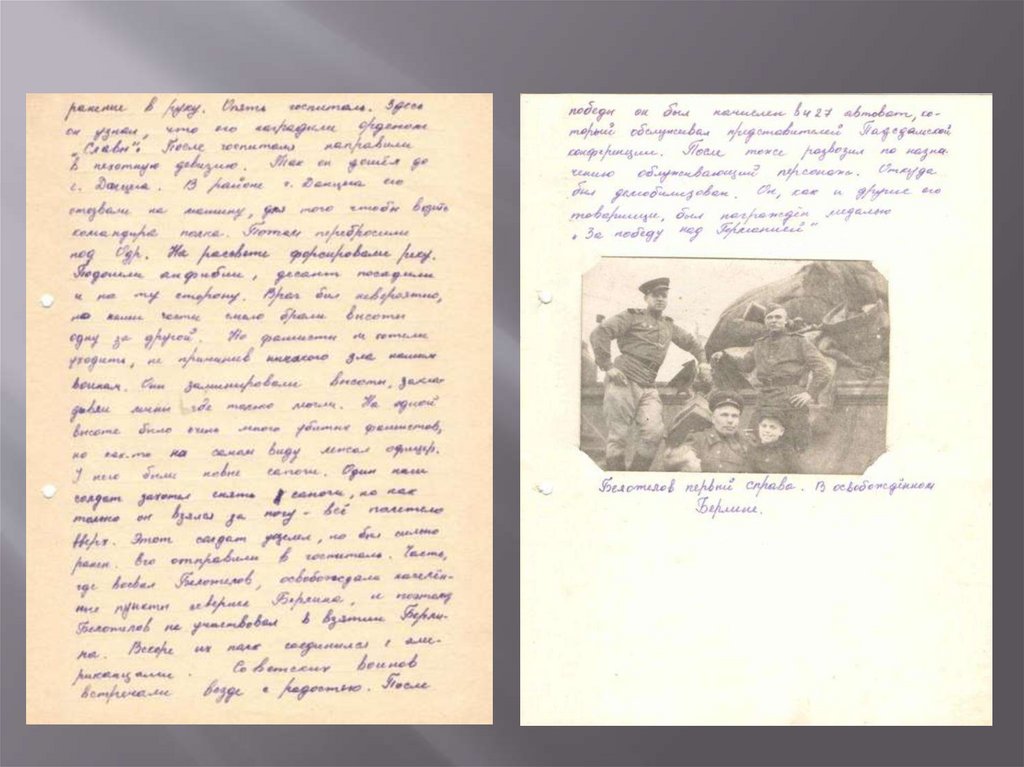 ранение в руку. Опять госпиталь. Здесь
он узнал, что его наградили орденом
„Славы". После госпиталя направили
в пехотную девизию. Так он дошёл до
г. Данцега. В районе г. Данцега его
отозвали на машину, для того чтобы возить
командира полка. Потом перебросили
под Одр. На рассвете форсировали реку.
Подошли анфибии, десант посадили
и на ту сторону. Враг бил невероятно,
но наши части смело брали высоты
одну за другой. Но фашисты не хотели
уходить, не причинив никакого зла нашим
воинам. Они заминировали высоты, закла-
дывали мины где только могли. На одной
высоте было очень много убитых фашистов,
но как-то на самом виду лежал офицер.
У него были новые сапоги. Один наш
солдат захотел снять сапоги, но как
только он взялся за ногу - всё полетело
вверх. Этот солдат уцелел, но был сильно
ранен. Его отправили в госпиталь. Часть,
где воевал Белотелов, освобождала населён-
ные пункты севернее Берлина, и поэтому
Белотелов не участвовал в взятии Берли-
на. Вскоре их полк соединился с аме-
риканцами. Советских воинов
встречали везде с радостью. После
победы он был начислен в 427 автобат, ко-
торый обслуживал представителей Падсдамской
конференции. После тоже развозил по назна-
чению обслуживающий персонаж. Откуда
был демобилизован. Он, как и другие его
товарищи, был награждён медалью
„За победу над Германией"
Белотелов первый справа. В освобождённом
Берлине.